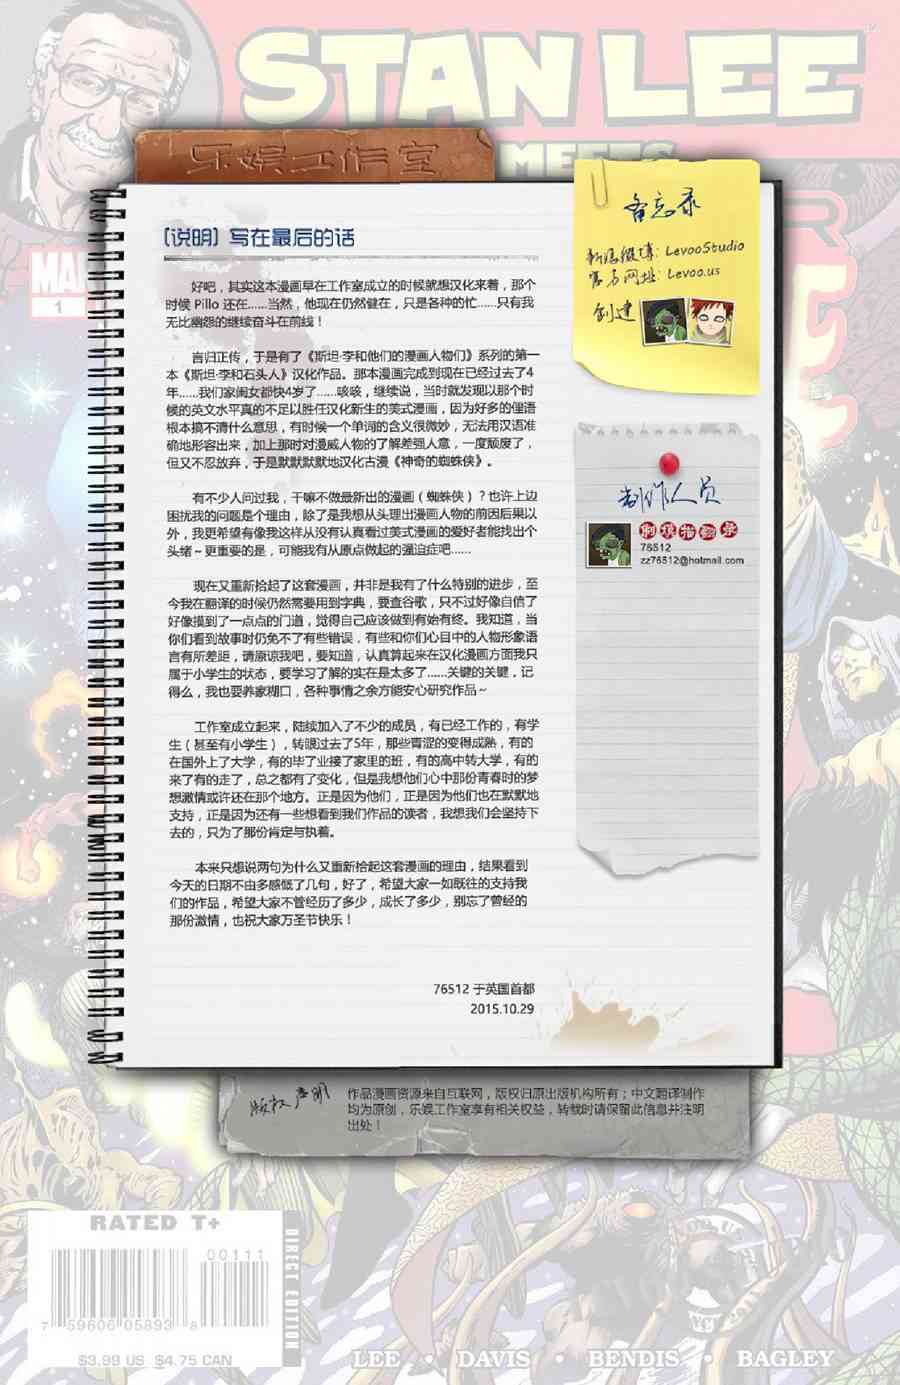 STAN LEE
MEETS
乐娱工作室
[说明] 写在最后的话
好吧，其实这本漫画早在工作室成立的时候就想汉化来着，那个
时候 Pillo 还在……当然，他现在仍然健在，只是各种的忙……只有我
无比幽怨的继续奋斗在前线！
言归正传，于是有了《斯坦·李和他们的漫画人物们》系列的第一
本《斯坦·李和石头人》汉化作品。那本漫画完成到现在已经过去了4
年……我们家闺女都快4岁了……咳咳，继续说，当时就发现以那个时
候的英文水平真的不足以胜任汉化新生的美式漫画，因为好多的俚语
根本搞不清什么意思，有时候一个单词的含义很微妙，无法用汉语准
确地形容出来，加上那时对漫威人物的了解差强人意，一度颓废了，
但又不忍放弃，于是默默默默地汉化古漫《神奇的蜘蛛侠》。
有不少人问过我，干嘛不做最新出的漫画（蜘蛛侠）？也许上边
困扰我的问题是个理由，除了是我想从头理出漫画人物的前因后果以
外，我更希望有像我这样从没有认真看过美式漫画的爱好者能找出个
头绪～更重要的是，可能我有从原点做起的强迫症吧……
现在又重新拾起了这套漫画，并非是我有了什么特别的进步，至
今我在翻译的时候仍然需要用到字典，要查谷歌，只不过好像自信了
好像摸到了一点点的门道，觉得自己应该做到有始有终。我知道，当
你们看到故事时仍免不了有些错误，有些和你们心目中的人物形象语
言有所差距，请原谅我吧，要知道，认真算起来在汉化漫画方面我只
属于小学生的状态，要学习了解的实在是太多了……关键的关键，记
得么，我也要养家糊口，各种事情之余方能安心研究作品～
工作室成立起来，陆续加入了不少的成员，有已经工作的，有学
生（甚至有小学生），转眼过去了5年，那些青涩的变得成熟，有的
在国外上了大学，有的毕了业接了家里的班，有的高中转大学，有的
来了有的走了，总之都有了变化，但是我想他们心中那份青春时的梦
想激情或许还在那个地方。正是因为他们，正是因为他们也在默默地
支持，正是因为还有一些想看到我们作品的读者，我想我们会坚持下
去的，只为了那份肯定与执着。
本来只想说两句为什么又重新拾起这套漫画的理由，结果看到
今天的日期不由多感慨了几句，好了，希望大家一如既往的支持我
们的作品，希望大家不管经历了多少，成长了多少，别忘了曾经的
那份激情，也祝大家万圣节快乐！
76512 于英国首都
2015.10.29
备忘录
新浪微博: LevooStudio
官方网址: Levoo.us
创建
制作人员
76512
zz76512@hotmail.com
版权声明
作品漫画资源来自互联网，版权归原出版机构所有；中文翻译制作
均为原创，乐娱工作室享有相关权益，转载时请保留此信息并注明
出处！
1
RATED T+
00111
7 59606 05893 8
DIRECT EDITION
$3.99 US $4.75 CAN
LEE • DAVIS • BENDIS • BAGLEY